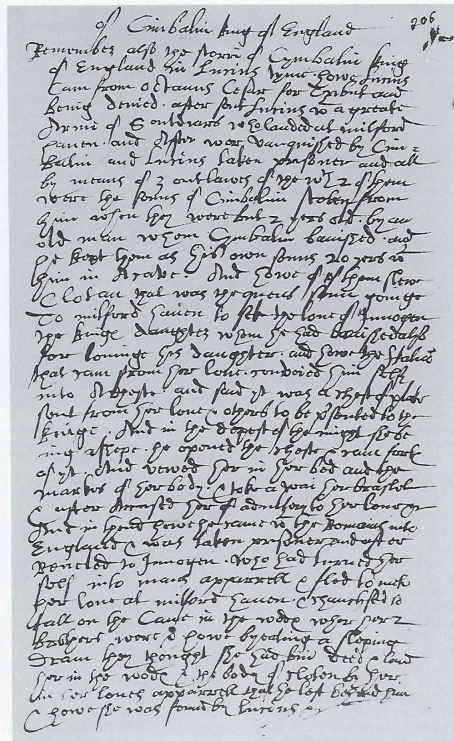 of Cimbalin king of England
206
Remember also the storri of Cymbalin king
of England in Lucius tyme. howe Lucius
Cam from Octauus Cesar for Tribut and
being denied. after sent Lucius wth a greate
Armi of Souldiars who landed at milford
hauen. and Affter wer vanquished by Cim=
balin and Lucius taken prisoner and all
by means of 3 outlawes of the wch 2 of them
were the sonns of Cimbalim stolen from
him when they were but 2 yers old. by an
old man whom Cymbalin banished. and
he kept them as his own sonns 20 yers wth
him in A cave. And howe of of them slewe
Clotan that was the quens sonn goinge
To milford hauen to sek the loue of Innogen
the kinges daughter whom he had banished also
for louinge his daughter. and howe the Italian
that cam from her loue. conveied him selfe
into A Cheste. and said yt was a chest of plate
sent from her loue & others to be p̱sented to the
kinge. And in the depest of the night she be
ing aslepe. he opened the cheste & cam forth
of yt. And vewed her in her bed and the
markes of her body. & toke a wai her braslet
& after Accused her of adultery to her loue &c
And in thend howe he came wth the Romains into
England & was taken prisoner and after
Reueled to Innogen. Who had turned her
self into mans apparrell & fled to mete
her loue at milford hauen. & chanchsed to
fall on the Caue in the wodes wher her 2
brothers were & howe by eating a sleping
Dram they thought she had bin deed & laid
her in the wodes & the body of cloten by her.
in her loues apparrell that he left behind him
& howe she was found by lucius &c